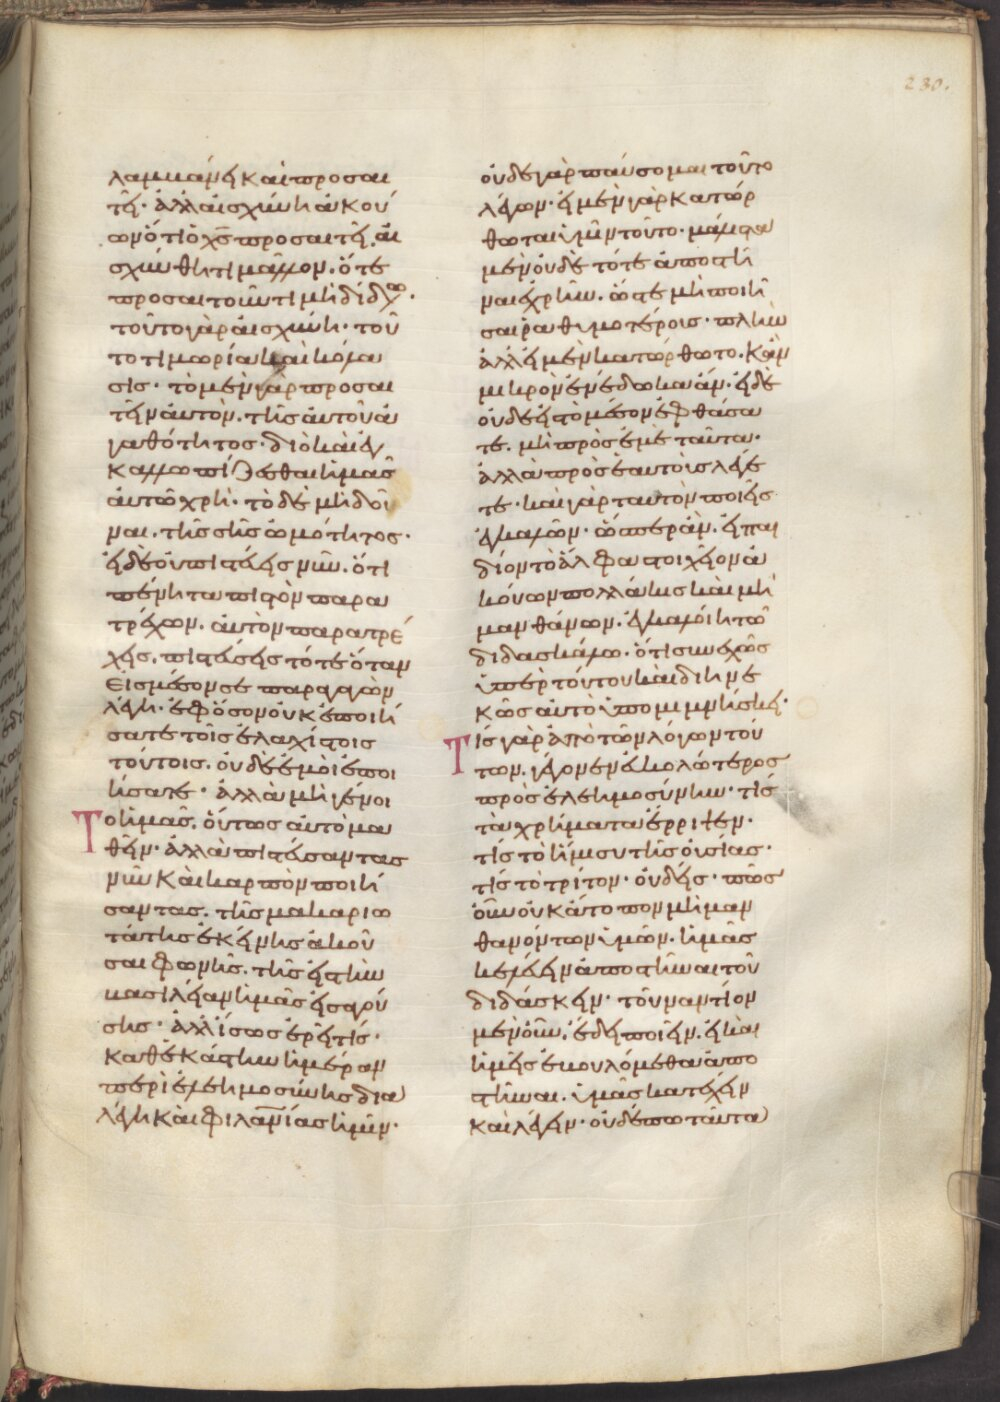 λαμβάνει καὶ προσαι
τεῖ· ἀλλ' αἰσχύνη ἀκού
ων ὅτι ὁ χς προσαιτεῖ. αἰ
σχύνθητι μᾶλλον. ὅτε
προσαιτοῦντι μὴ δίδως.
τοῦτο γὰρ αἰσχύνη· τοῦ
το τιμωρία καὶ κόλα
σις· τὸ μὲν γὰρ προσαι
τεῖν αὐτὸν. τῆς αὐτοῦ ἀ
γαθότητος· διὸ καὶ ἐγ
καλλωπίζεσθαι ἡμᾶς
αὐτῷ χρή· τὸ δὲ μὴ δοῦ
ναι. τῆς σῆς ὠμότητος·
εἰ δὲ οὐ πιστεύεις νῦν. ὅτι
πένητα πιστὸν παρα
τρέχων. αὐτὸν παρατρέ
χεις. πιστεύσεις τότε ὅταν
εἰς μέσον σε παραγαγὼν
λέγη· ἐφ' ὅσον οὐκ ἐποιή
σατε τοῖς ἐλαχίστοις
τούτοις. οὐδὲ ἐμοὶ ἐποι
ήσατε· ἀλλὰ μὴ γένοι
Το ἡμᾶς. οὕτως αὐτὸ μα
θεῖν· ἀλλὰ πιστεύσαντας
νῦν καὶ καρπὸν ποιή
σαντας. τῆς μακαριω
τάτης ἐκείνης ἀκοῦ
σαι φωνῆς. τῆς εἰς τὴν
βασιλείαν ἡμᾶς εἰσαγού
σης· ἀλλ' ἴσως ἐρεῖ τίς·
καθεκάστην ἡμέραν
περὶ ἐλεημοσύνης δια
λέγη καὶ φιλανίας ἡμῖν·
230.
οὐδὲ γὰρ παύσομαι τοῦτο
λέγων· εἰ μὲν γὰρ κατώρ
θωται ὑμῖν τοῦτο· μάλιστα
μὲν οὐδὲ τότε ἀποστῆ
ναι ἐχρῆν. ὥστε μὴ ποιῆ
σαι ῥαθυμοτέρους· πλὴν
ἀλλ' εἰ μὲν κατώρθωτο. κἂν
μικρὸν ἐνέδωκα ἄν· εἰ δὲ
οὐδὲ εἰς τὸ μέσον ἐφθάσα
τε. μὴ πρὸς ἐμὲ ταῦτα·
ἀλλὰ πρὸς ἑαυτοὺς λέγε
τε· καὶ γὰρ ταυτὸν ποιεῖς
ἐγκαλῶν· ὥσπερ ἂν. εἰ παι
δίον τὸ ἄλφα στοιχεῖον ἀ
κούων πολλάκις καὶ μὴ
μανθάνων. ἐγκαλοίη τῷ
διδασκάλω. ὅτι συνεχῶς
ὑπὲρ τούτου καὶ διηνε
κῶς αὐτὸ ὑπομιμνήσκει·
Τίς γὰρ ἀπὸ τῶν λόγων τού
των. γέγονεν εὐκολώτερος
πρὸς ἐλεημοσύνην· τίς
τὰ χρήματα ἔρριψεν·
τίς τὸ ἥμισυ τῆς οὐσίας·
τίς τὸ τρίτον· οὐδείς· πῶς
οὖν οὐκ ἄτοπον μὴ μαν
θανόντων ὑμῶν. ἡμᾶς
κελεύειν ἀποστῆναι τοῦ
διδάσκειν· τοὐναντίον
μὲν οὖν. ἔδει ποιεῖν. εἰ καὶ
ἡμεῖς ἐβουλόμεθα ἀπο
στῆναι. ὑμᾶς κατέχειν
καὶ λέγειν· οὐδέπω ταῦτα